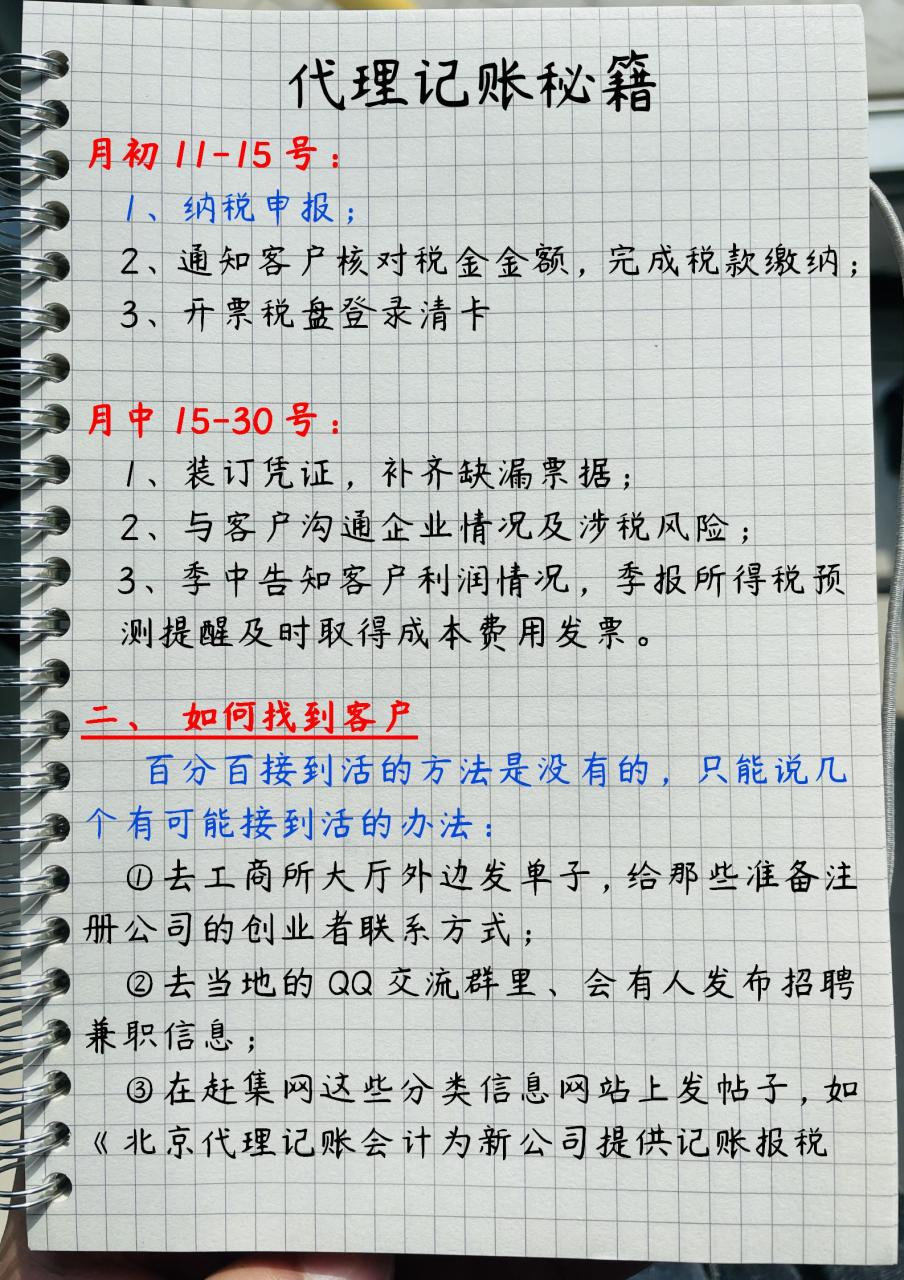 代理记账秘籍
月初 11-15 号：
1、纳税申报；
2、通知客户核对税金金额，完成税款缴纳；
3、开票税盘登录清卡
月中 15-30 号：
1、装订凭证，补齐缺漏票据；
2、与客户沟通企业情况及涉税风险；
3、季中告知客户利润情况，季报所得税预
测提醒及时取得成本费用发票。
二、 如何找到客户
百分百接到活的方法是没有的，只能说几
个有可能接到活的办法：
①去工商所大厅外边发单子，给那些准备注
册公司的创业者联系方式；
②去当地的 QQ 交流群里、会有人发布招聘
兼职信息；
③在赶集网这些分类信息网站上发帖子，如
《北京代理记账会计为新公司提供记账报税